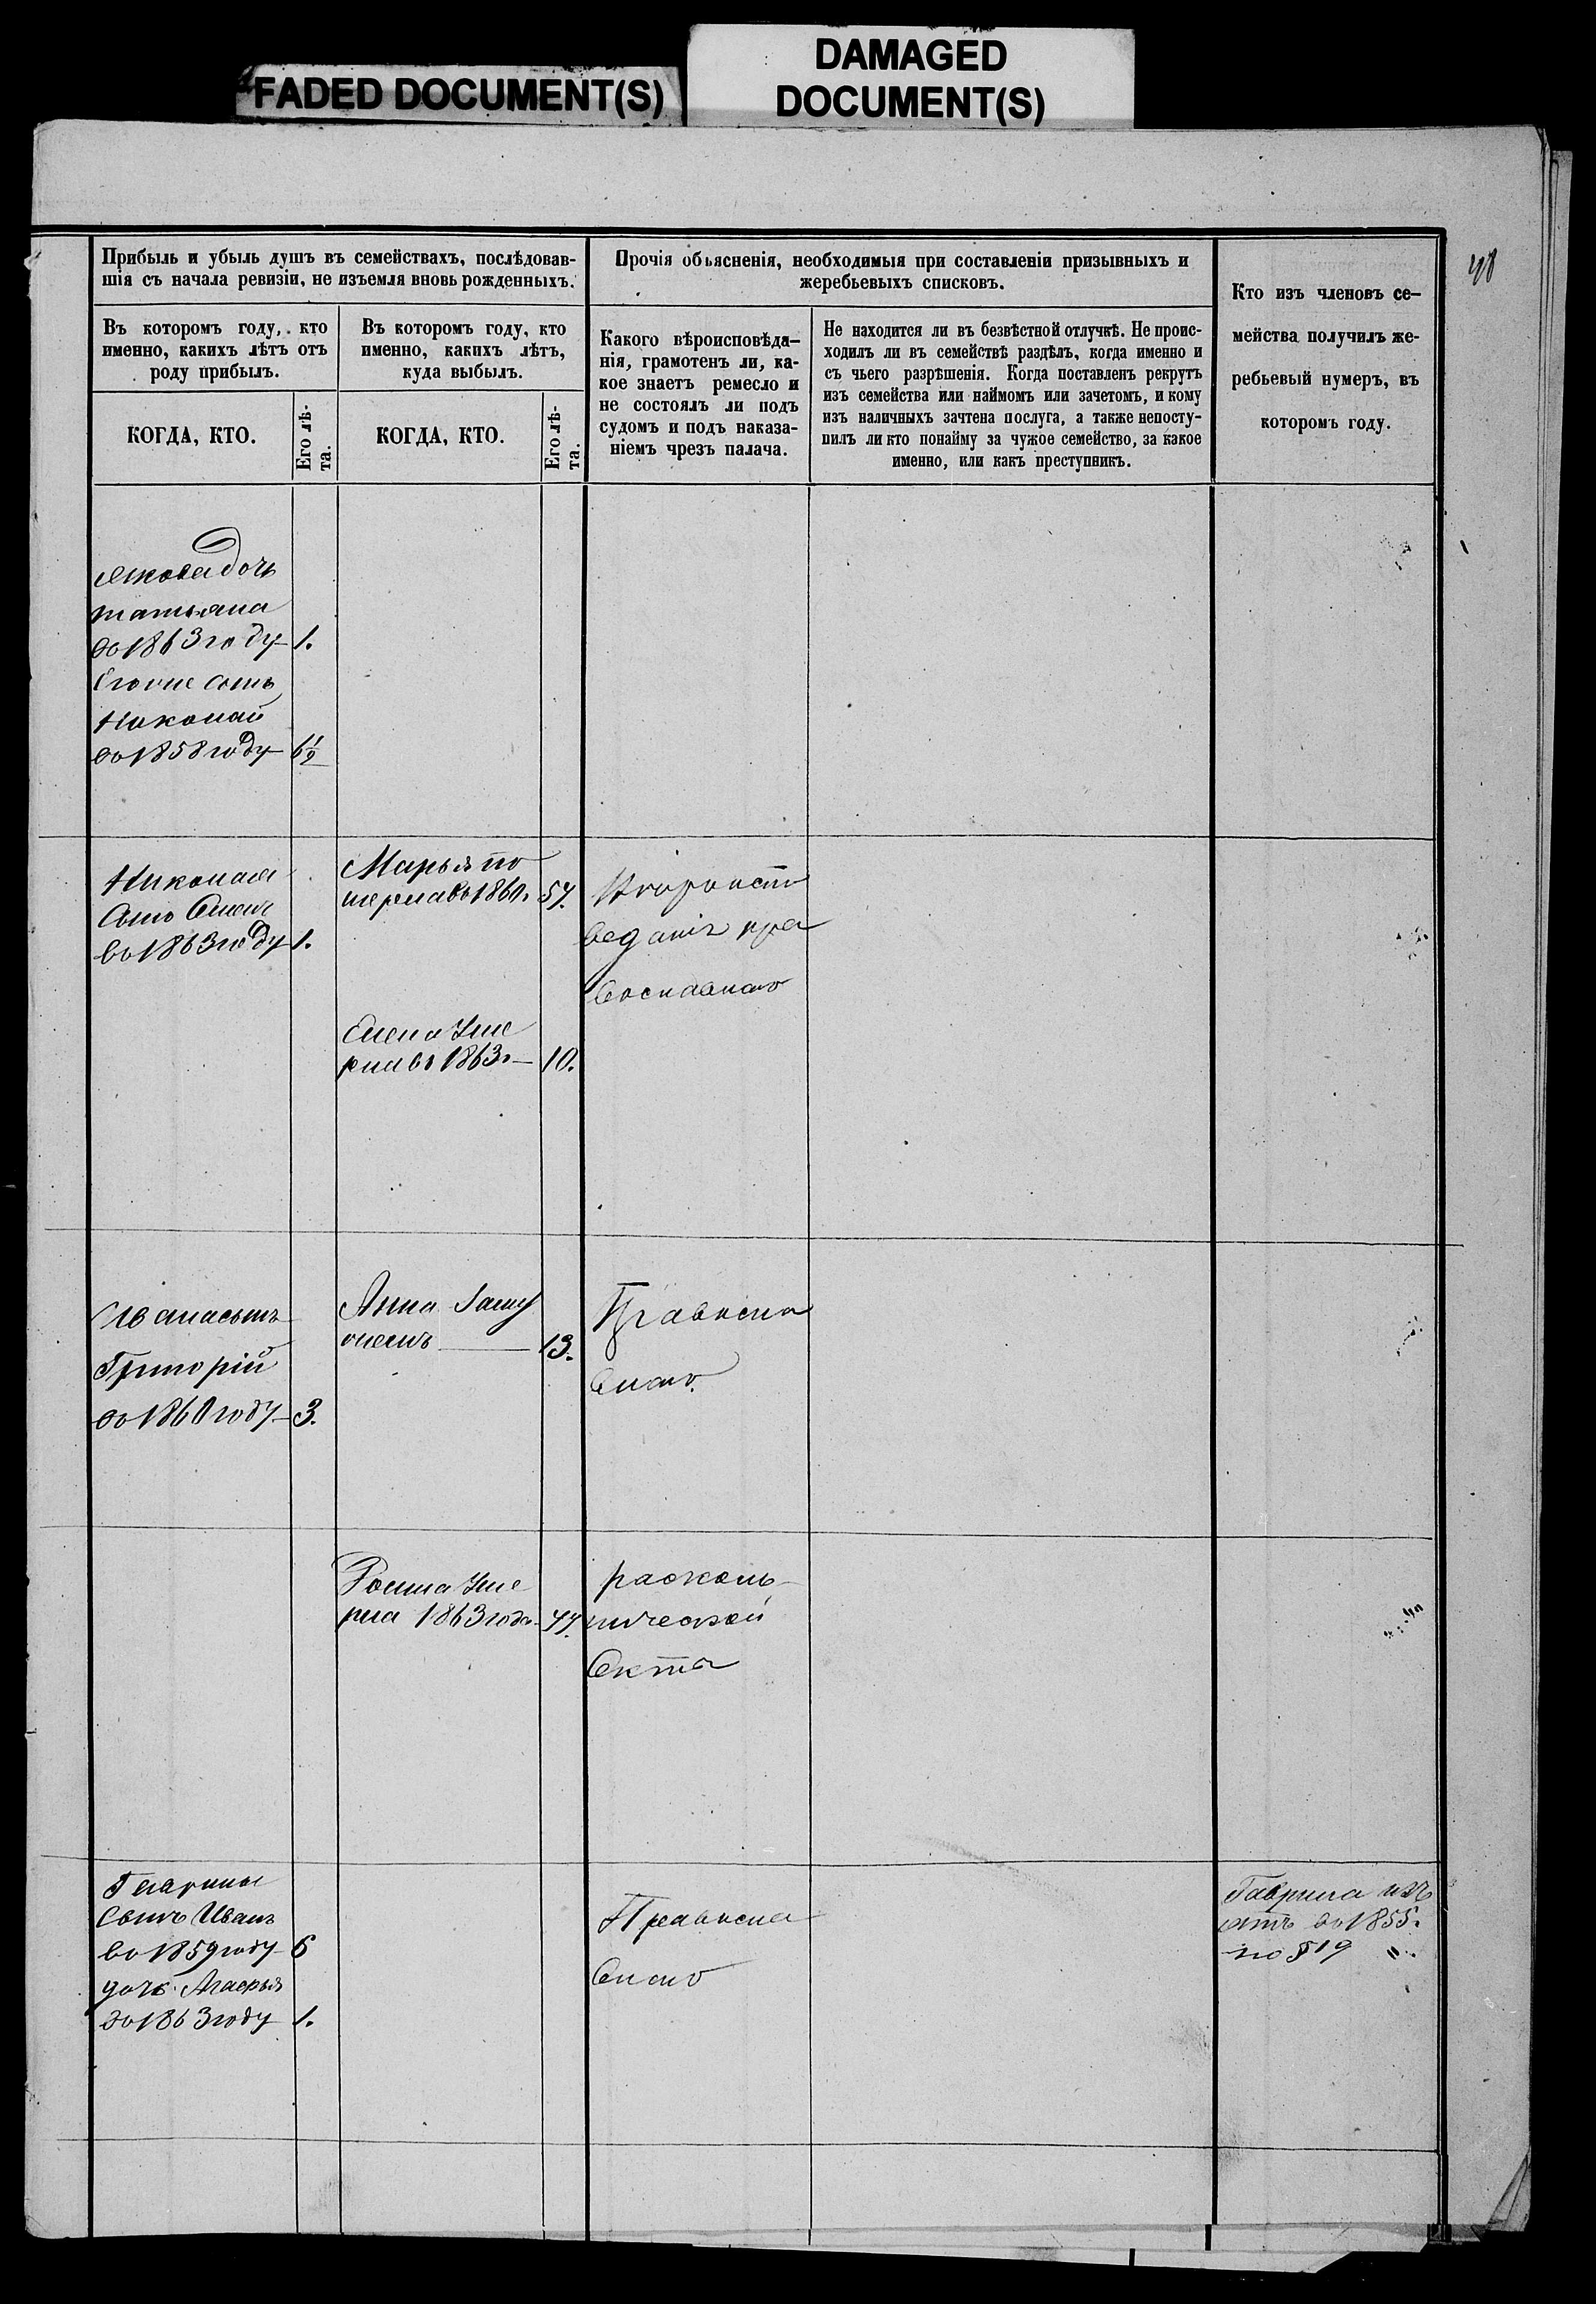 FADED DOCUMENT(S)
DAMAGED
DOCUMENT(S)
48
Прибыль и убыль душъ въ семействахъ, послѣдовав-
шія съ начала ревизіи, не изъемля вновь рожденныхъ.
Прочія объясненія, необходимыя при составленіи призывныхъ и
жеребьевыхъ списковъ.
Кто изъ членовъ се-
мейства получилъ же-
ребьевый нумеръ, въ
которомъ году.
Въ которомъ году, кто
именно, какихъ лѣтъ отъ
роду прибылъ.
Въ которомъ году, кто
именно, какихъ лѣтъ,
куда выбылъ.
Какого вѣроисповѣда-
нія, грамотенъ ли, ка-
кое знаетъ ремесло и
не состоялъ ли подъ
судомъ и подъ наказа-
ніемъ чрезъ палача.
Не находится ли въ безвѣстной отлучкѣ. Не проис-
ходилъ ли въ семействѣ раздѣлъ, когда именно и
съ чьего разрѣшенія. Когда поставленъ рекрутъ
изъ семейства или наймомъ или зачетомъ, и кому
изъ наличныхъ зачтена послуга, а также непосту-
пилъ ли кто понайму за чужое семейство, за какое
именно, или какъ преступникъ.
КОГДА, КТО.
Его лѣ-
та.
КОГДА, КТО.
Его лѣ-
та.
Якова дочь
татьяна
во 1863 году 1.
Егоже сынъ
Николай
во 1858 году 6½
Николая
сынъ
во 1863 году 1.
Марья по
мерла во 1860. 57.
Елена Уме
рла во 1863. 10.
веданія пра
вославнаго
Ивана сынъ
Григорій
во 1860 году 3.
Анна Заму
жемъ 13.
Правосла
внаго.
Уме
рла 1863 года 77.
расколь-
нической
Секты
Гаврилы
Сынъ Иванъ
во 1859 году 6
дочь Марья
во 1863 году 1.
Правосла
внаго
Гаврила изъ
ятъ во 1855.
по № 19 "